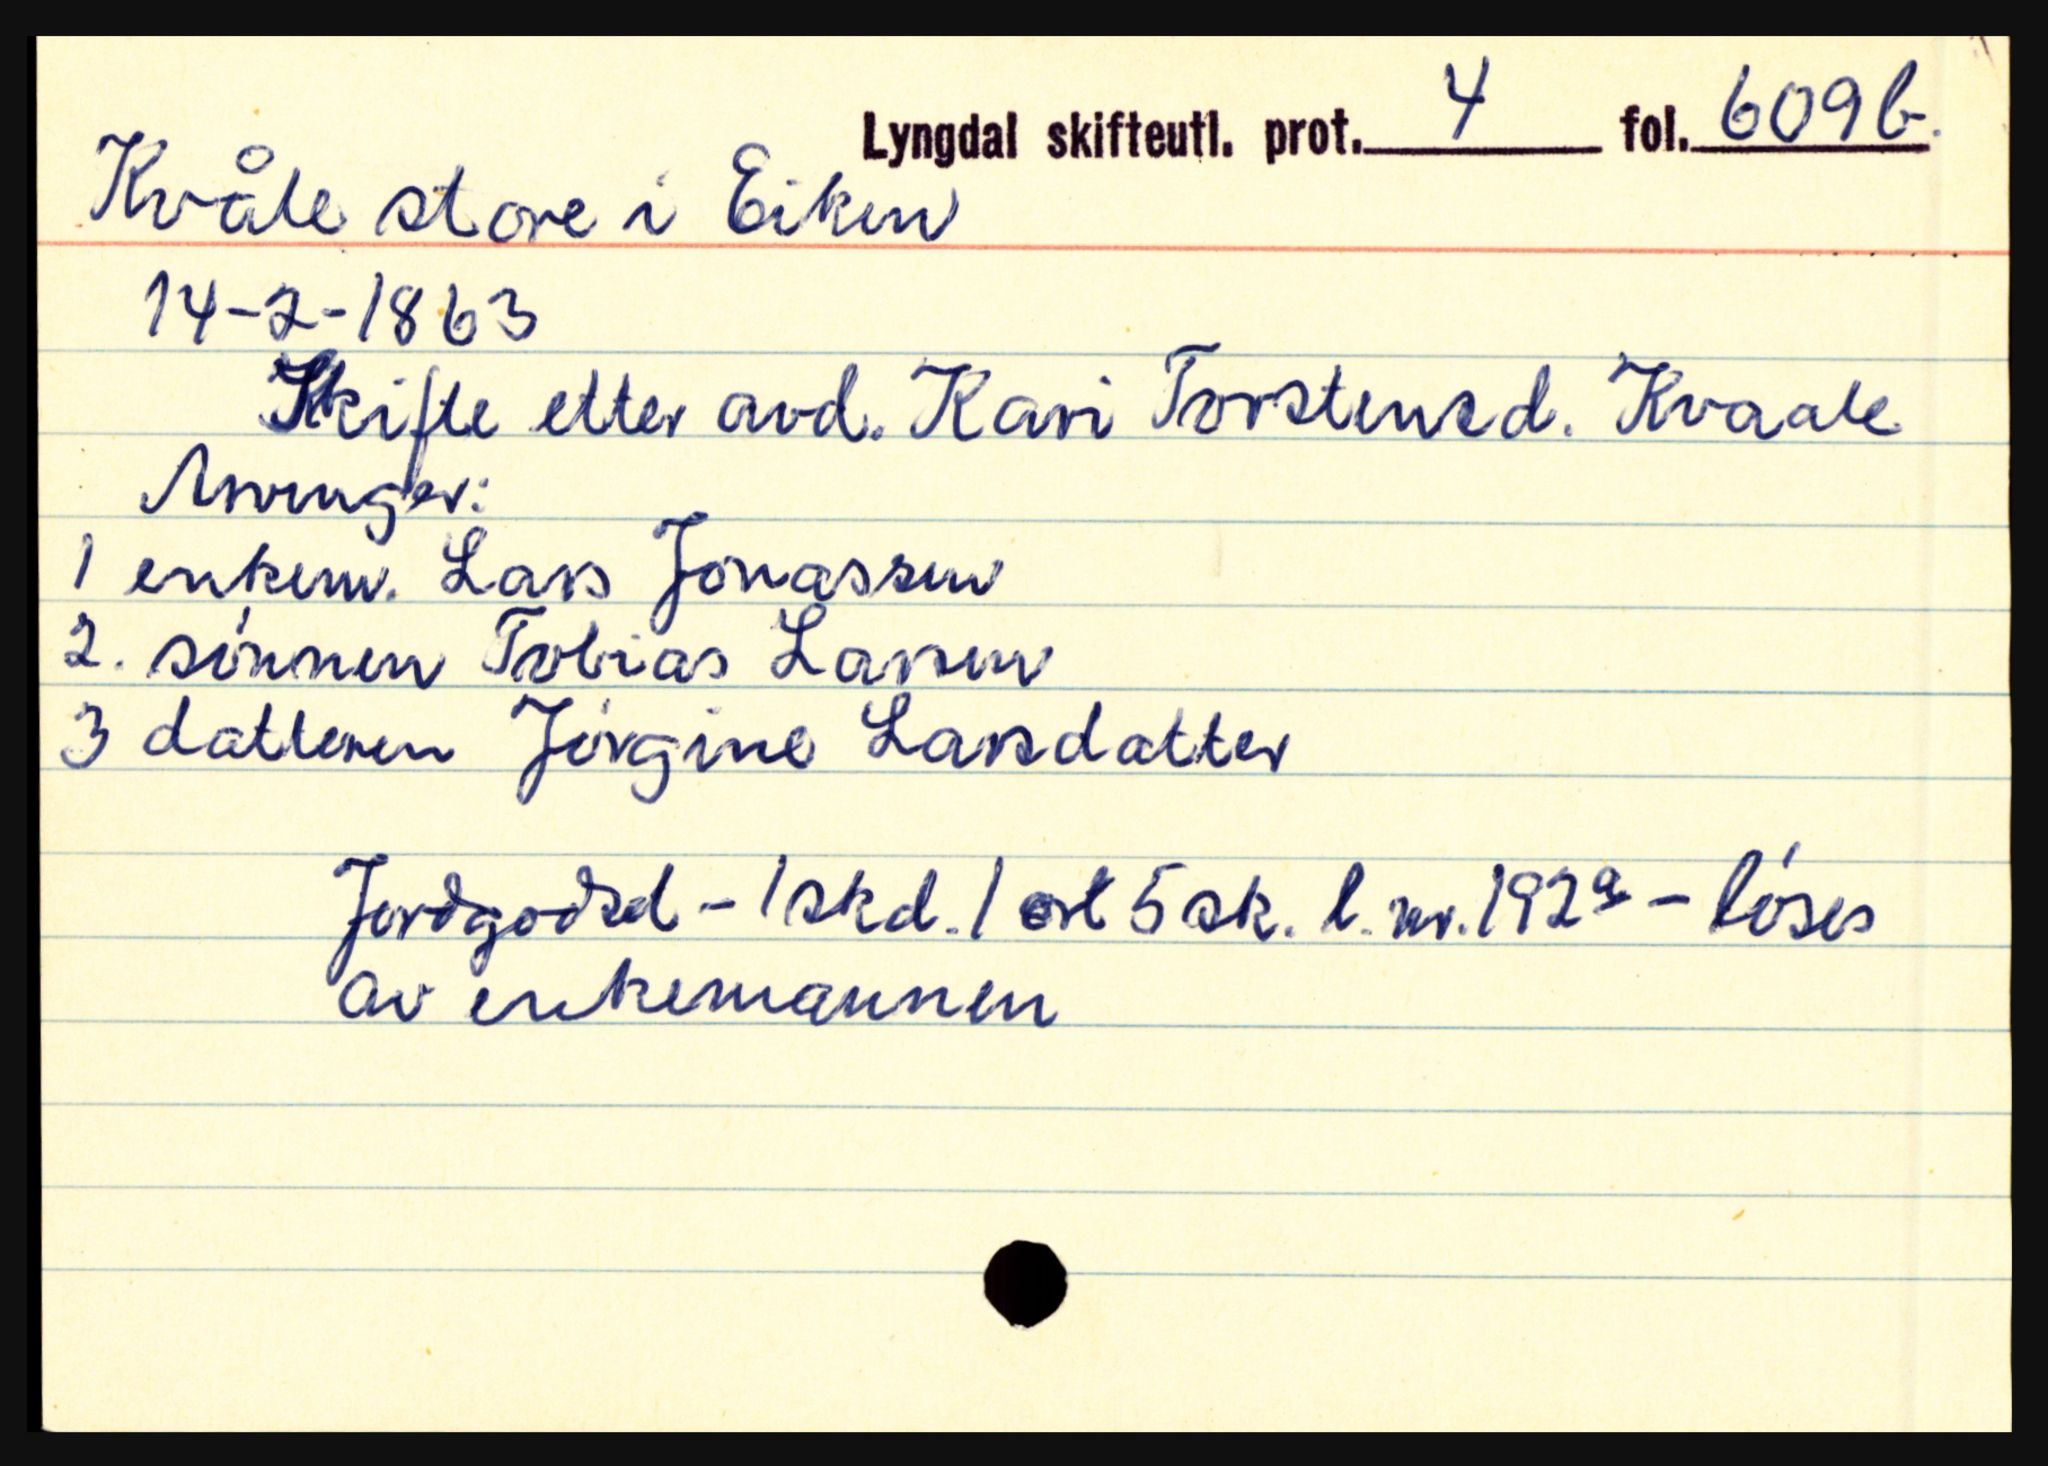 Lyngdal skifteutl. prot. 4 fol. 609b.
Kvåle store i Eiken
14-2-1863
Skifte etter avd. Kari Torstensd. Kvaale
Arvinger:
1 enkem. Lars Jonassen
2. sónnen Tobias Larsen
3 datteren Jórgine Larsdatter
Jordgodsd - 1 skd. 1 ort 5 sk. l. nr. 192a - lóses
av enkemannen